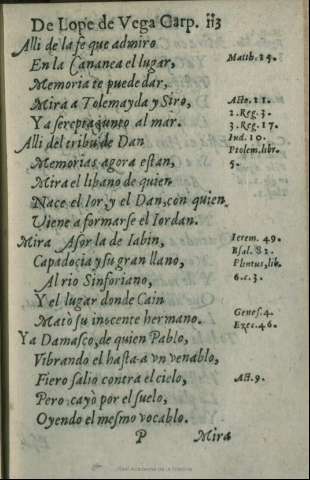 De Lope de Vega Carp. 113
Alli de la fe que admiro
En la Cananea el lugar,
Matth. 25.
Memoria te puede dar,
Mira a Tolemayda y Siro,
Acto. 21.
Ya sereptajunto al mar.
2. Reg. 3.
3. Reg. 17.
Alli del tribu de Dan
Iud. 20.
Memorias agora estan,
Ptolem. libr.
5.
Mira el libano de quien
Nace el Ior, y el Dan, con quien
Viene a formarse el Iordan.
Mira Asor la de Iabin,
Ierem. 49.
Capadocia y su gran llano,
Psal. 82.
Plinius, lib.
Al rio Sinforiano,
6. c. 3.
Y el lugar donde Cain
Mato su inocente hermano.
Genes. 4.
Ezec. 46.
Ya Damasco, de quien Pablo,
Vibrando el hasta a vn venablo,
Fiero salio contra el cielo,
Act. 9.
Pero cayo por el suelo,
Oyendo el mesmo vocablo.
P Mira
Real Academia de la Historia